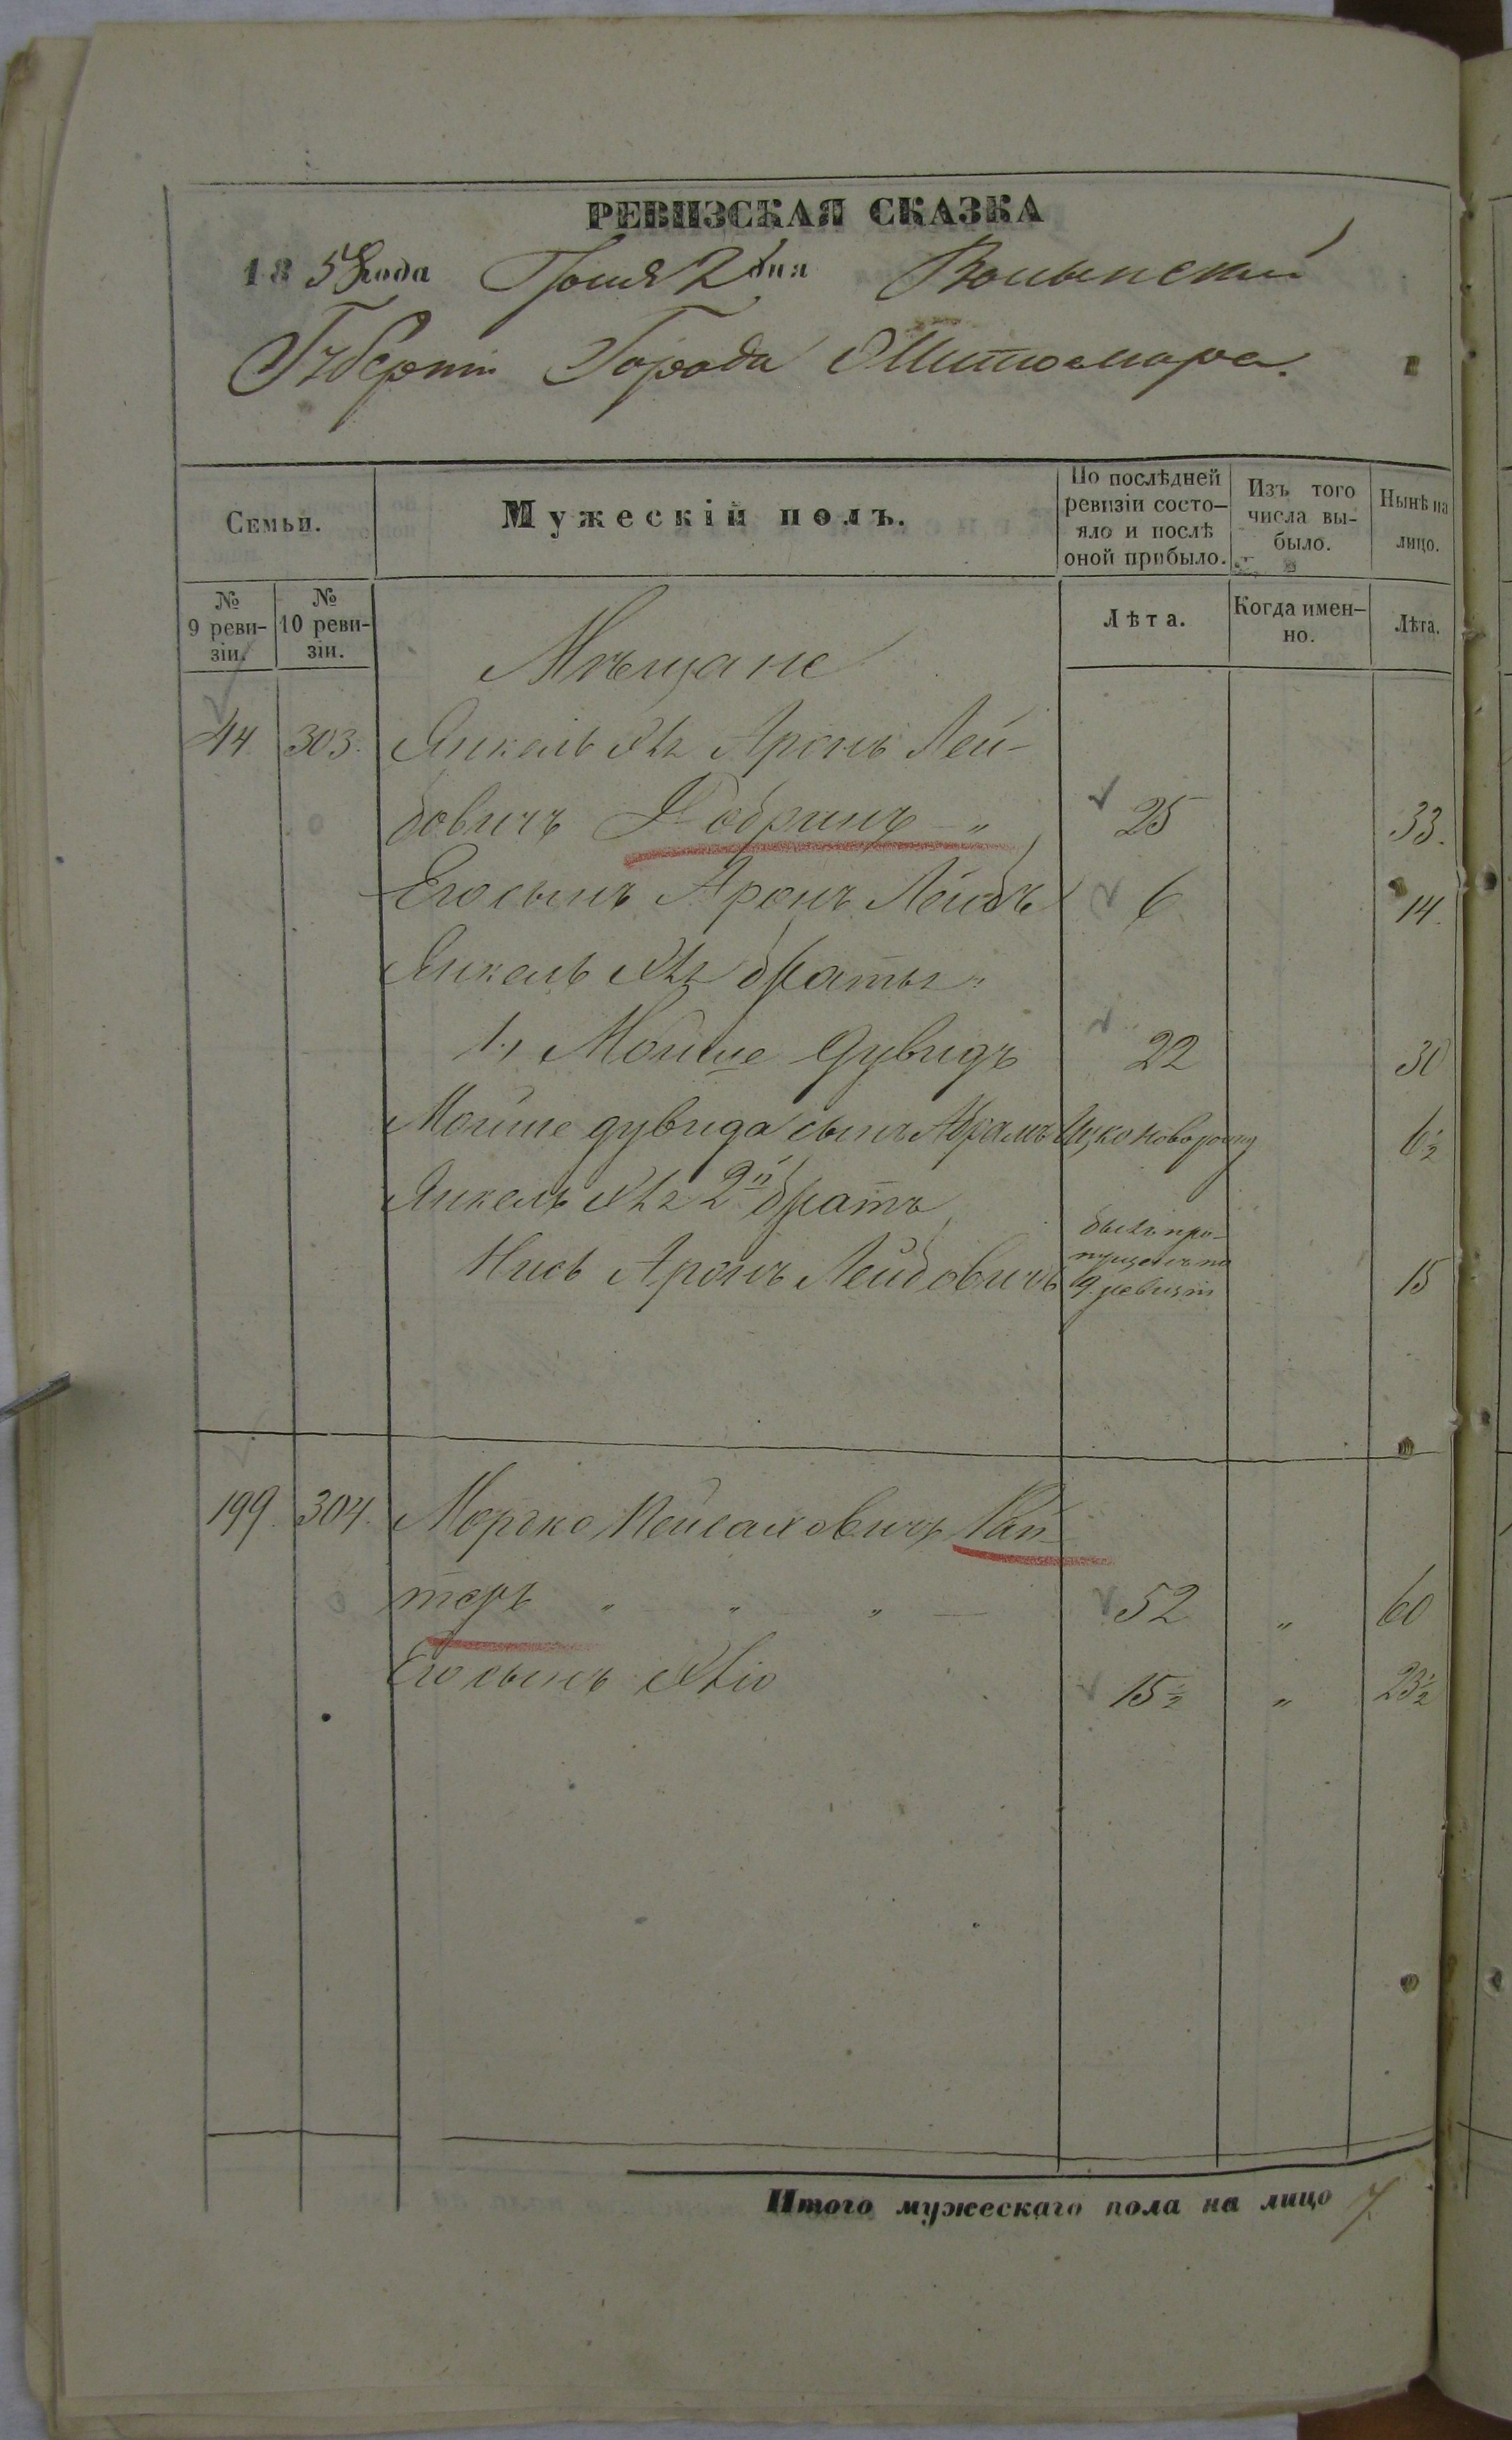 РЕВИЗСКАЯ СКАЗКА
1858 года Іюня 2 дня Волынской
Губерніи Города Житомира.
Семьи.
Мужескій полъ.
По послѣдней ревизіи состо-
яло и послѣ
оной прибыло.
Изъ того
числа вы-
было.
Нынѣ на
лицо.
№
9 реви-
зіи.
№
10 реви-
зіи.
Лѣта.
Когда имен-
но.
Лѣта.
Мѣщане
44 303. Янкель Аронъ Лей-
бовичъ Добринъ 〃 25 33.
Его сынъ Аронъ Лейбъ 6 14.
Янкель братья:
1., Мойше Дувидъ 22 30
Мойше Дувида сынъ Абрамъ Ицко новорожд 6½
Янкель 2й братъ
Аронъ Лейбовичъ былъ про-
пущенъ по
9 ревизіи 15
199. 304. Моргко Пейсаховичъ Рай-
теръ 〃 〃 〃 — 52 〃 60
Его сынъ 15½ 〃 23½
Итого мужескаго пола на лицо 7